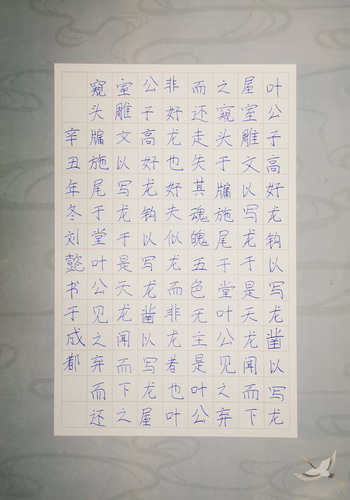 叶公子高好龙钩以写龙凿以写龙
屋室雕文以写龙于是天龙闻而下
之窥头于牖施尾于堂叶公见之弃
而还走失其魂魄五色无主是叶公
非好龙也好夫似龙而非龙者也叶
公子高好龙钩以写龙凿以写龙屋
室雕文以写龙于是天龙闻而下之
窥头牖施尾于堂叶公见之弃而还
辛丑年冬刘懿书于成都